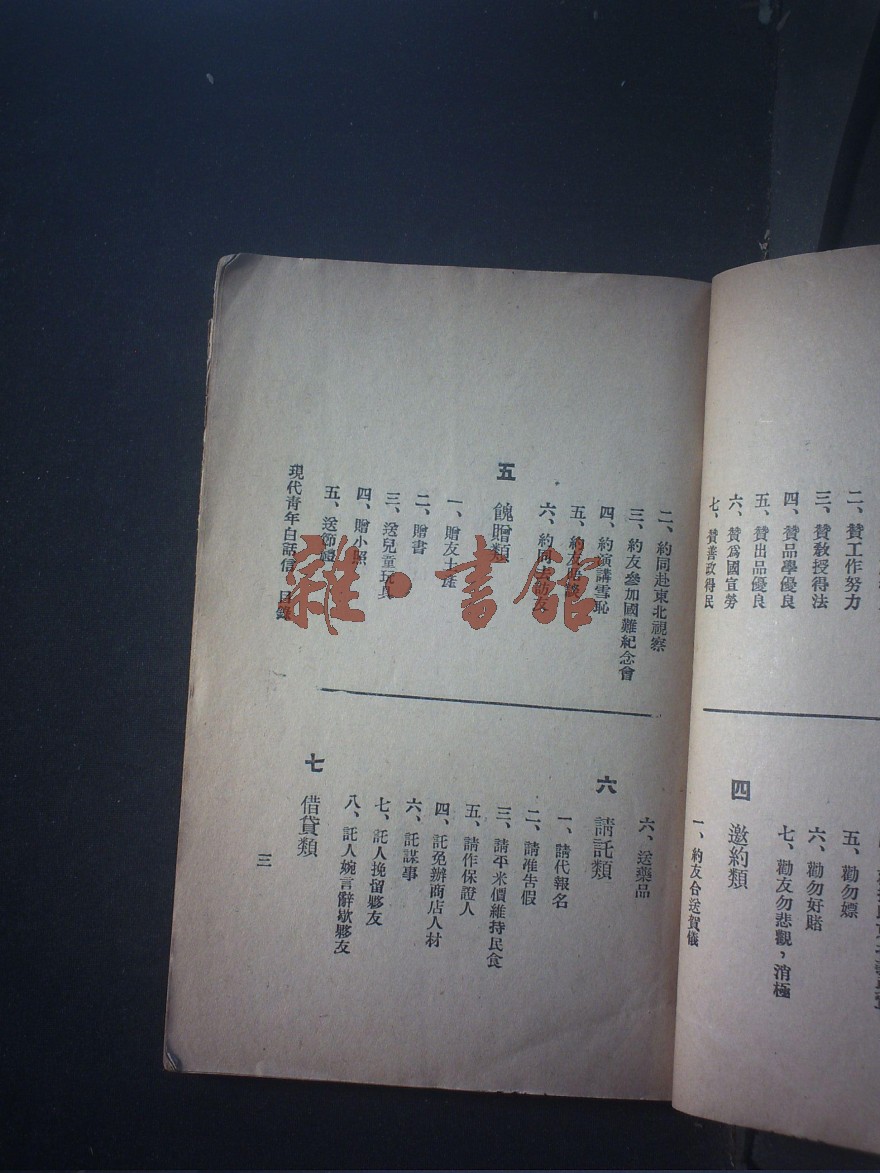 二、贊工作努力
三、贊敎授得法
四、贊品學優良
五、贊出品優良
六、贊爲國宣勞
七、贊善政得民
五、勸勿嫖
六、勸勿好賭
七、勸友勿悲觀，消極
四 邀約類
一、約友合送賀儀
二、約同赴東北視察
三、約友參加國難紀念會
四、約演講雪恥
五、約友晤談
六、約同去訪友
五 餽贈類
一、贈友土產
二、贈書
三、送兒童玩具
四、贈小照
五、送節禮
六、送藥品
六 請託類
一、請代報名
二、請准吿假
三、請平米價維持民食
五、請作保證人
四、託免辦商店人材
六、託謀事
七、託人挽留夥友
八、託人婉言辭歇夥友
七 借貸類
現代靑年白話信 目錄
三
雜·書館